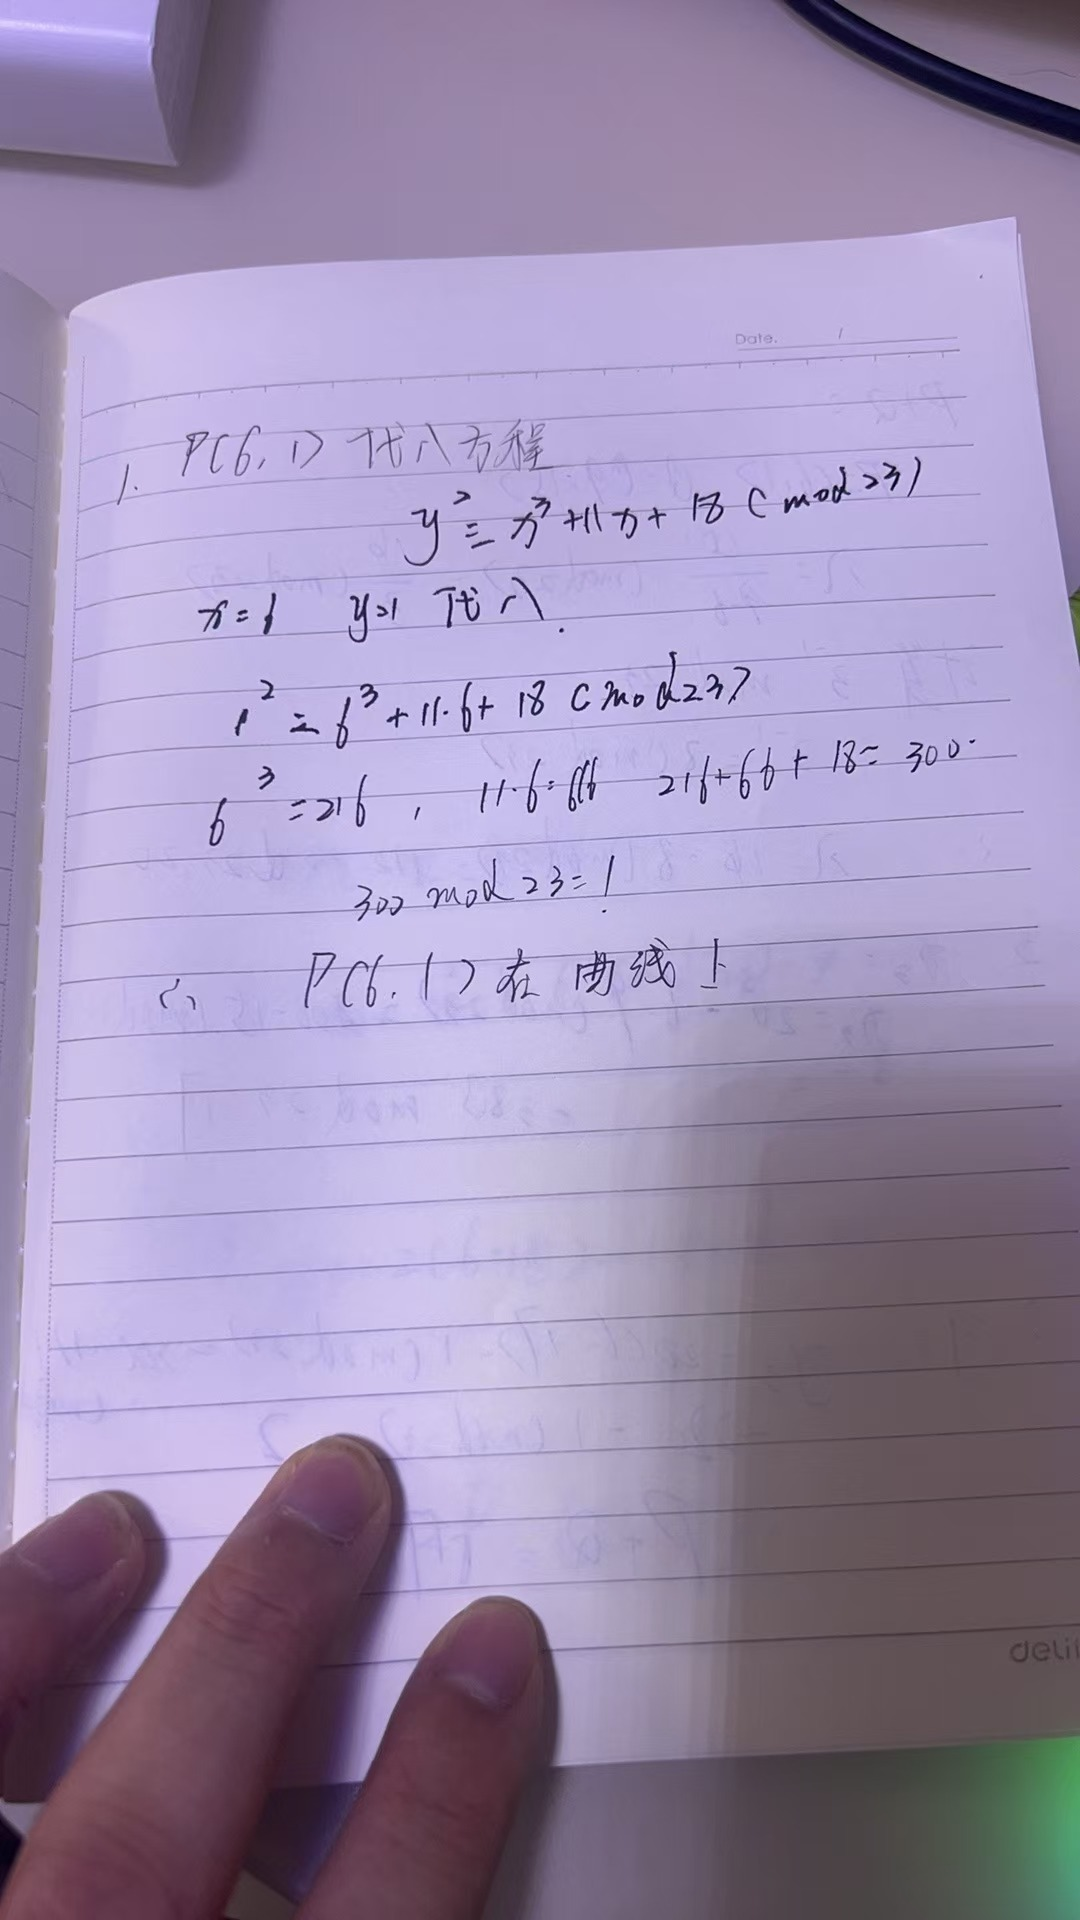 Date. /
1. P(6,1) 代入方程
y² ≡ x³+11x+18 (mod 23)
x=6 y=1 代入.
1² = 6³+11·6+18 (mod 23)
6³=216, 11·6=66 216+66+18=300.
300 mod 23=1.
∴ P(6.1)在曲线上
deli